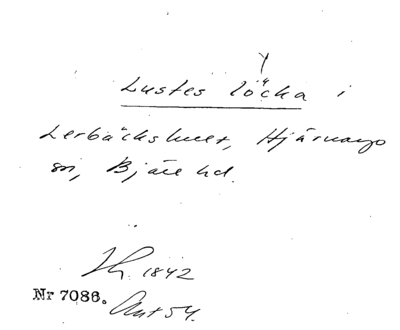 Lustes löcka i
Lerbäckshult, Hjärnarps
sn, Bjäre hd.
1842
Nr 7086. Ant 54.